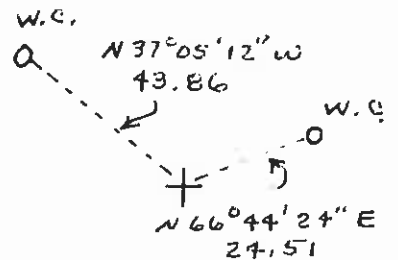 W.C.
N 37°05'12" W
43.86
W.C.
N 66°44'24" E
24.51